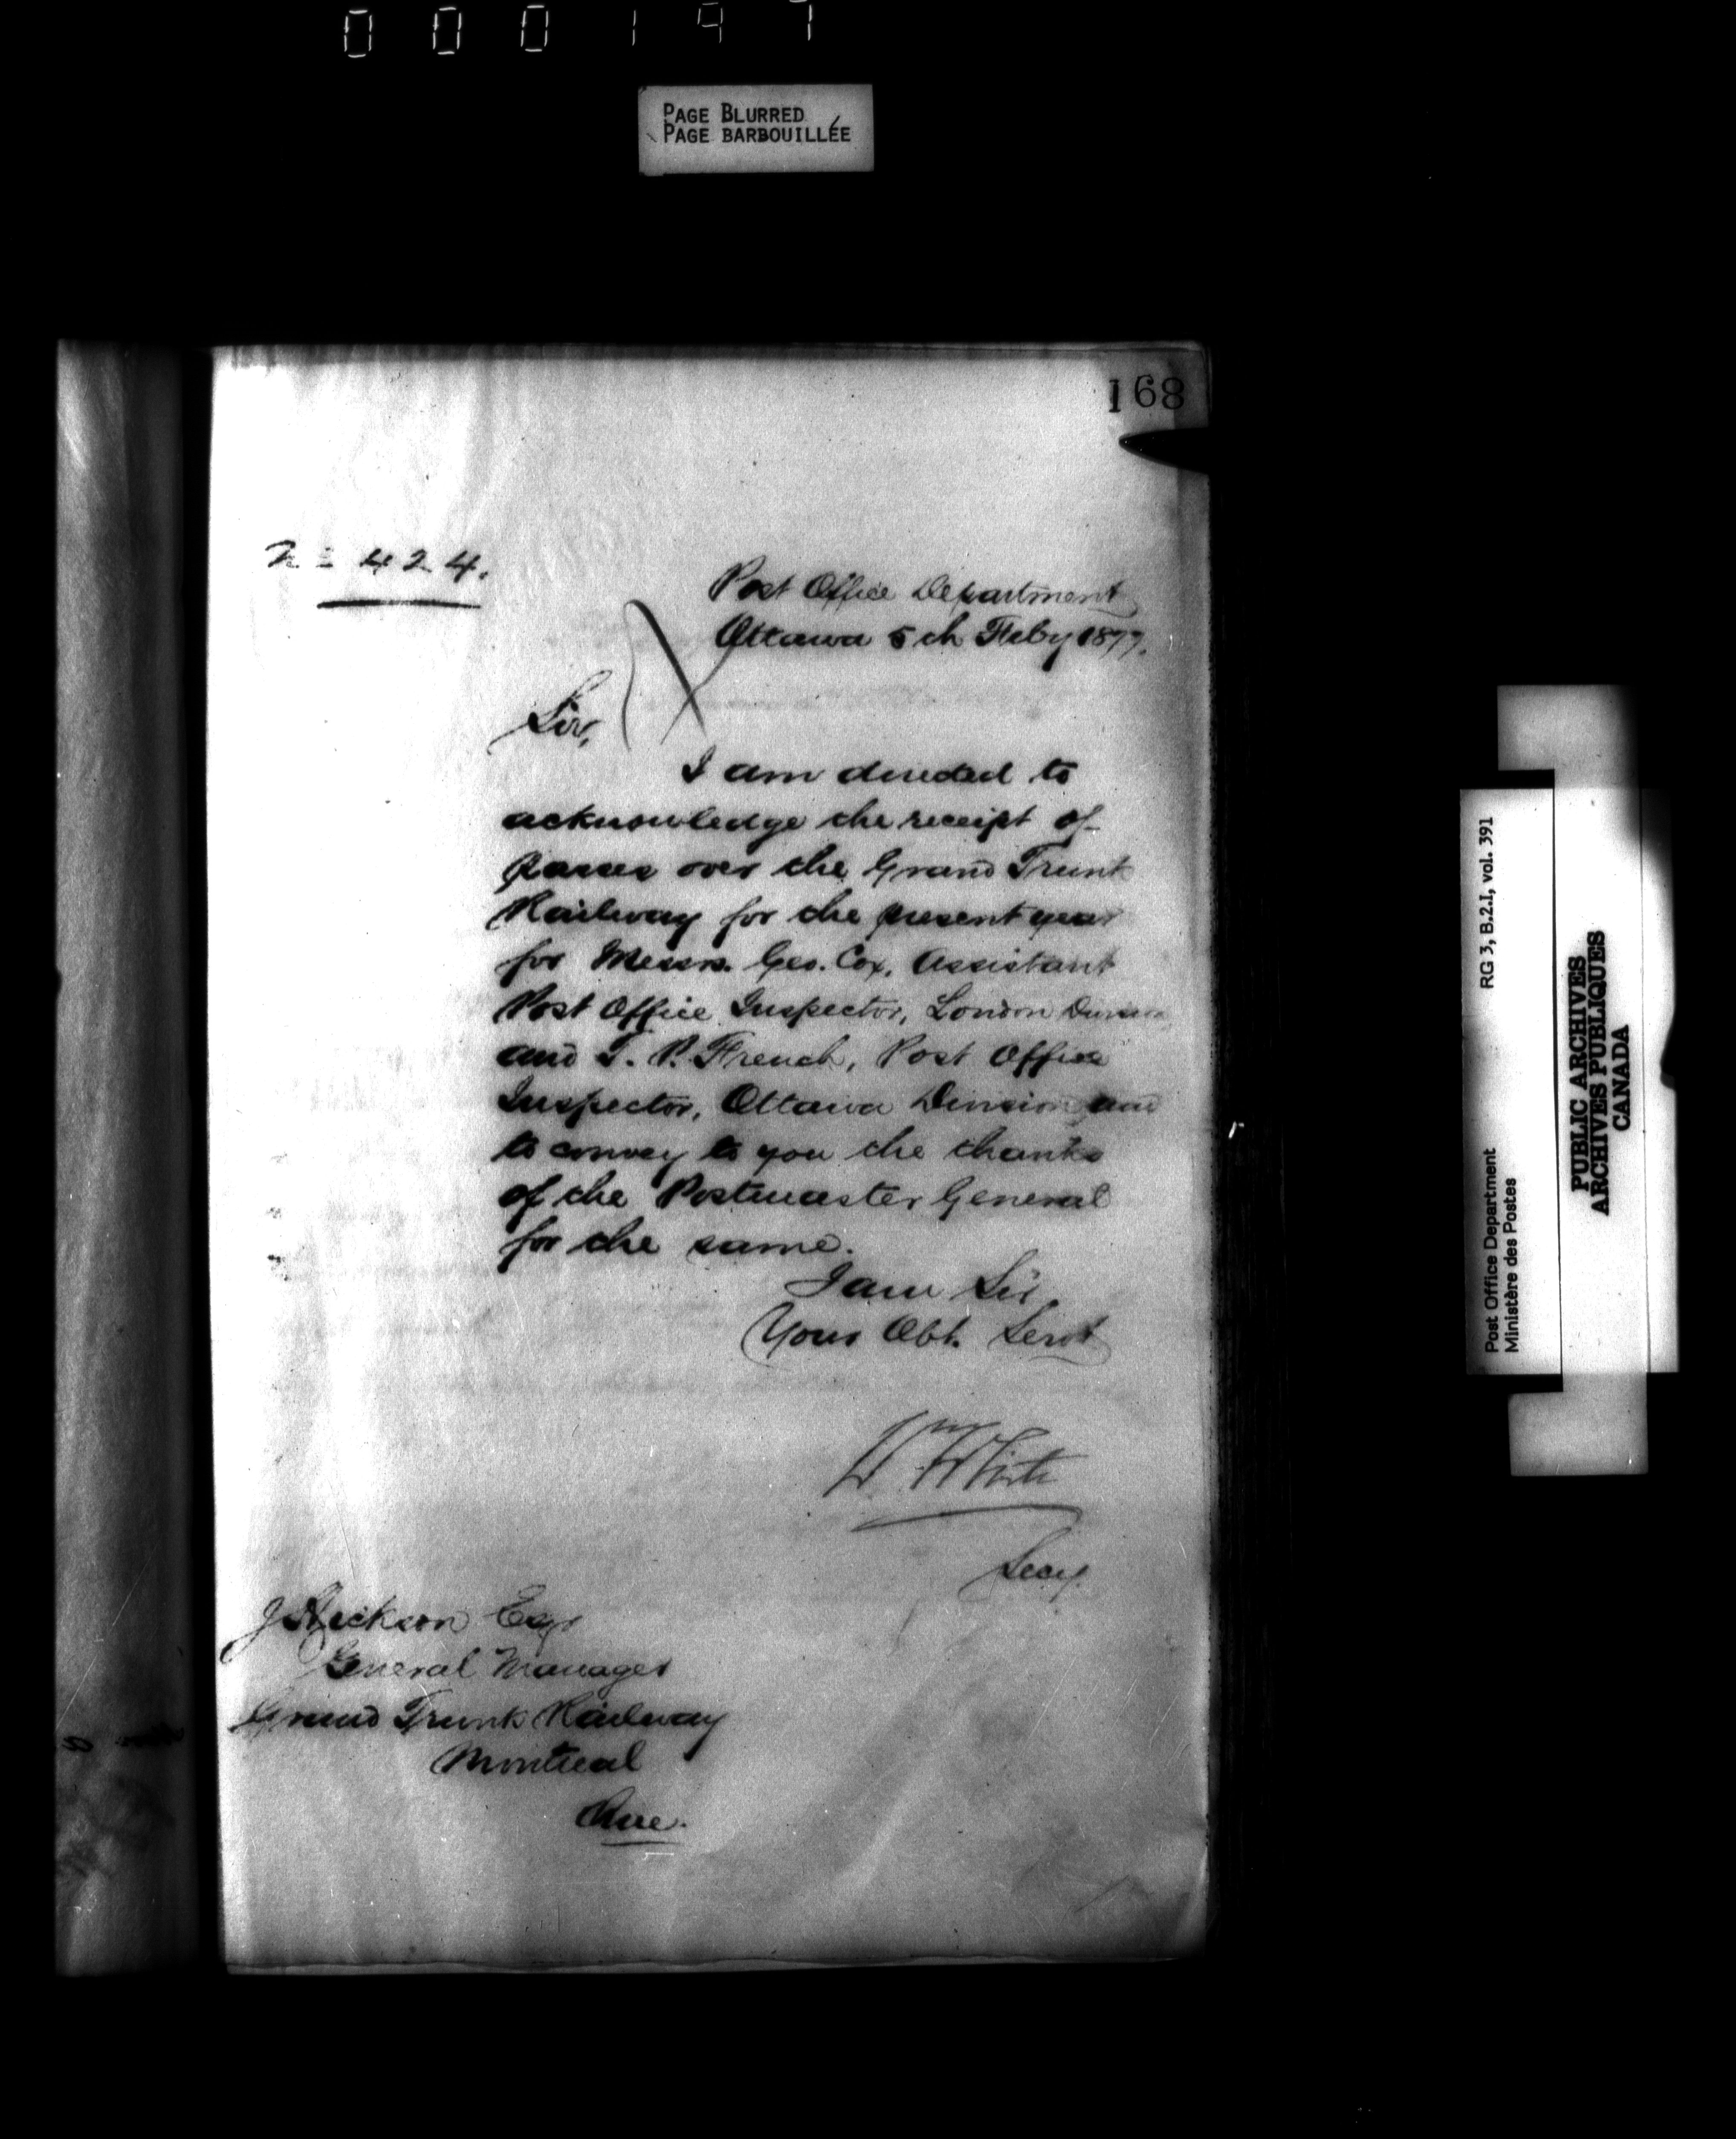 000197
PAGE BLURRED
PAGE BARBOUILLÉE
168
No 424.
Post Office Department
Ottawa 5th Feby 1877.
Sir,
I am directed to
acknowledge the receipt of
passes over the Grand Trunk
Railway for the present year
for Messrs. Geo. Cox, Assistant
Post Office Inspector, London Division
and T. P. French, Post Office
Inspector, Ottawa Division and
to convey to you the thanks
of the Postmaster General
for the same.
I am Sir
Your Obt. Servt
Wm White
Secy.
J Hickson Esqr
General Manager
Grand Trunk Railway
Montreal
Que.
RG 3, B.2.I, vol. 391
Post Office Department
Ministère des Postes
PUBLIC ARCHIVES
ARCHIVES PUBLIQUES
CANADA